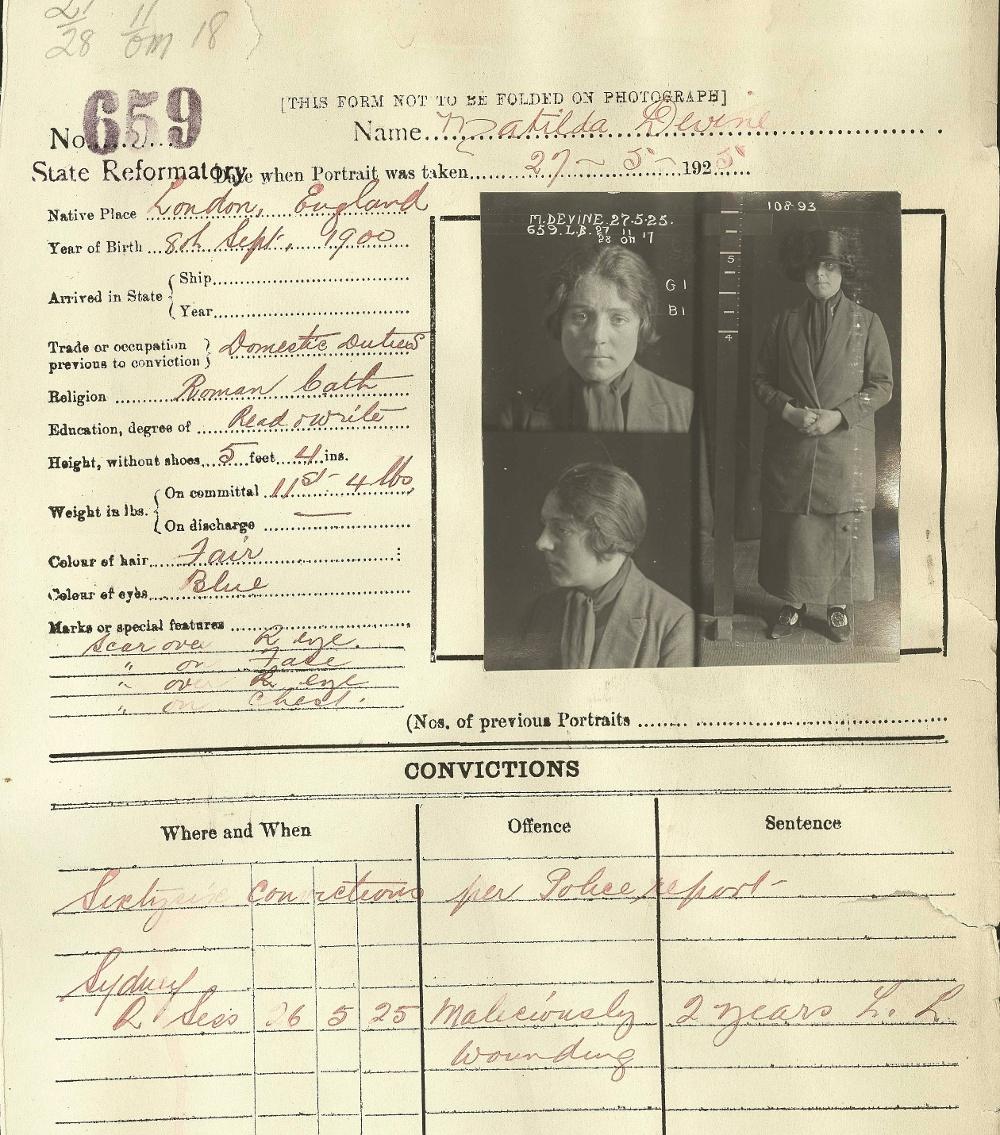 [THIS FORM NOT TO BE FOLDED ON PHOTOGRAPH]
No. 659
Name Matilda Devine
State Reformatory
Date when Portrait was taken 27-5-1925
Native Place London, England
Year of Birth 8th Sept. 1900
Arrived in State { Ship
Year
Trade or occupation previous to conviction } Domestic Duties
Religion Roman Cath
Education, degree of Read & Write
Height, without shoes 5 feet 4 ins.
Weight in lbs. { On committal 11st 4 lbs
On discharge —
Colour of hair Fair
Colour of eyes Blue
Marks or special features
Scar over R eye.
" on Face
" over R eye
" on Chest.
M.DEVINE.27-5-25.
659.L.B. 27 11
28 OM 17
G1
B1
108-93
5
4
(Nos. of previous Portraits
CONVICTIONS
Where and When
Offence
Sentence
Sixty six convictions per Police report
Sydney
Q Sess 26 5 25 Maliciously 2 years L. L.
Wounding